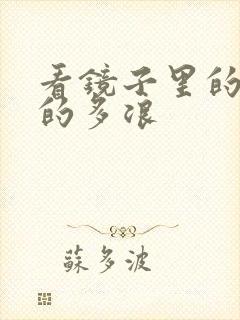 看镜子里的
的多浪
蘇多波